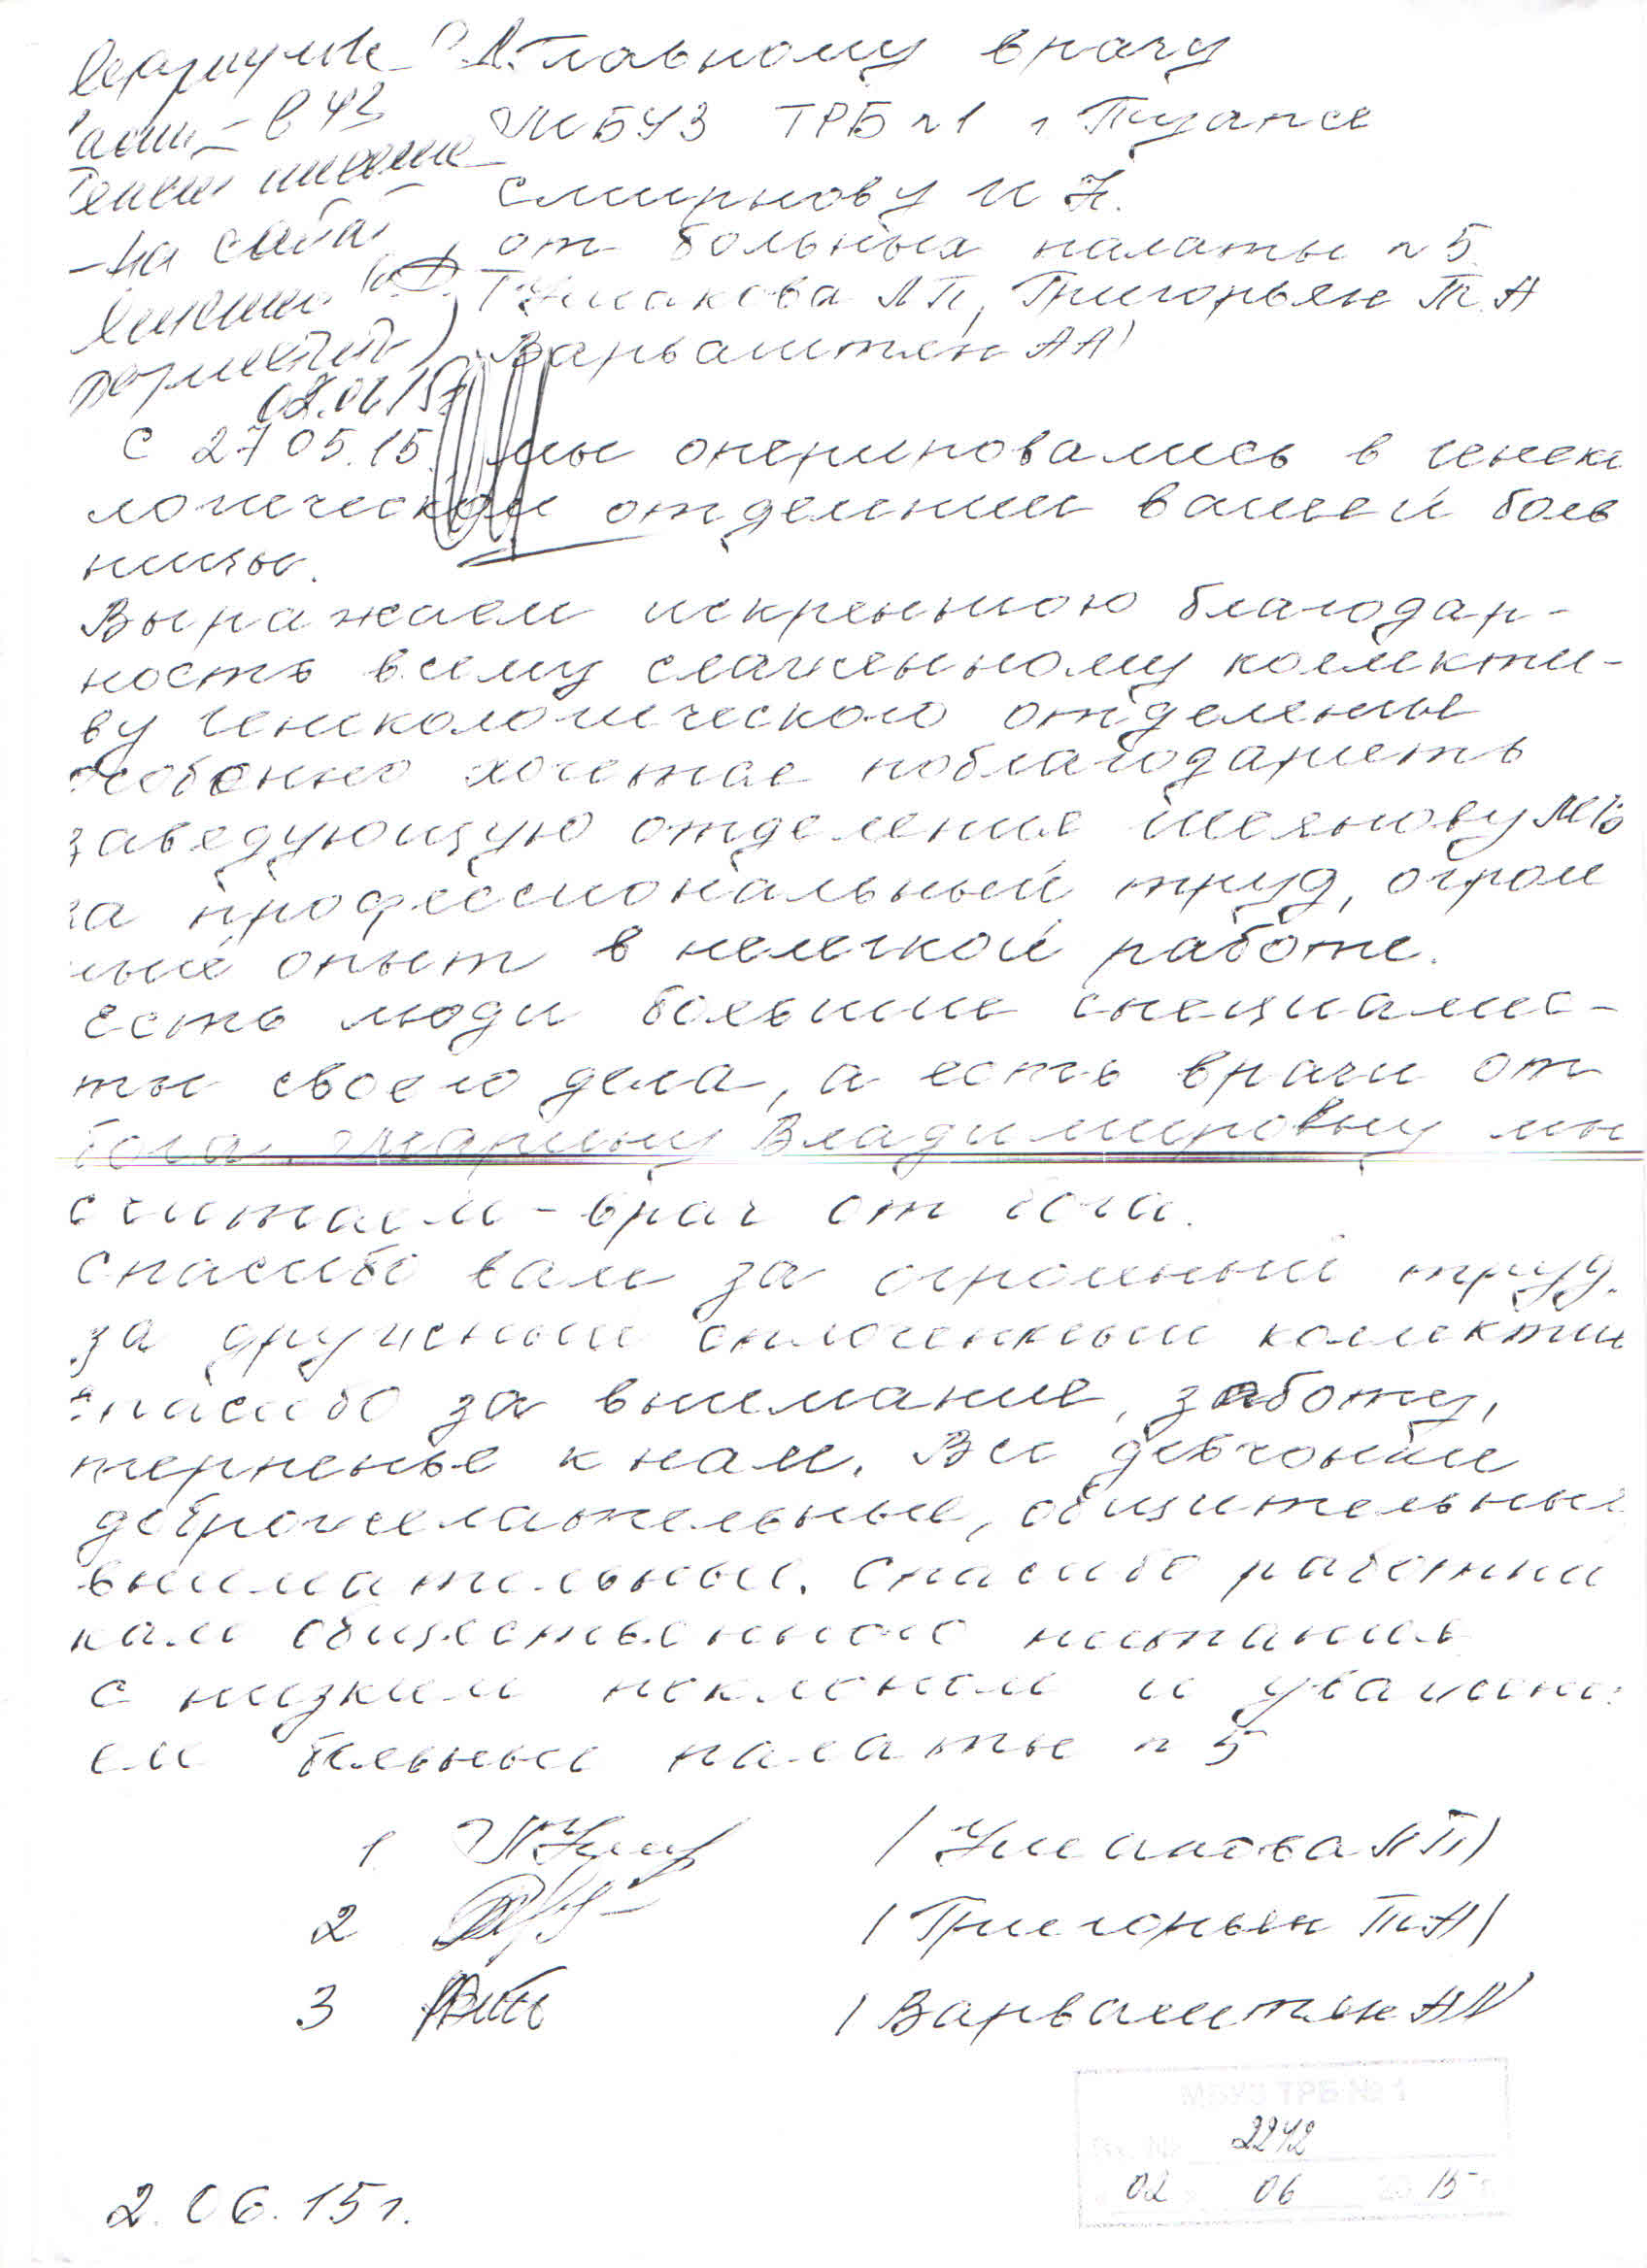 Главному врачу
МБУЗ ТРБ №1 г Туапсе
Смирнову И Н.
от больных палаты №5
Ушакова Л П, Григорьян Т.А
Варваштян А А
на сайт
02.06.15
С 27 05.15 мы оперировались в гинеко
логическом отделении вашей боль
ницы.
Выражаем искреннюю благодар-
ность всему слаженному коллекти-
ву гинекологического отделенье
особенно хочется поблагодарить
заведующую отделения МВ
за профессиональный труд, огром
ный опыт в нелегкой работе.
Есть люди большие специалис-
ты своего дела, а есть врачи от
бога. Марину Владимировну мы
считаем - врач от бога.
Спасибо вам за огромный труд.
за дружный сплоченный коллектив
спасибо за внимание, заботу,
терпенье к нам. Все девчонки
доброжелательные, общительные
внимательные. Спасибо работни
кам общественного питания
с низким поклоном и уважени
ем больные палаты №5
1 (Ушакова Л П)
2 (Григорьян Т А)
3 (Варваштян А А)
МБУЗ ТРБ № 1
Вх. № 2242
02 06 2015
2.06.15г.